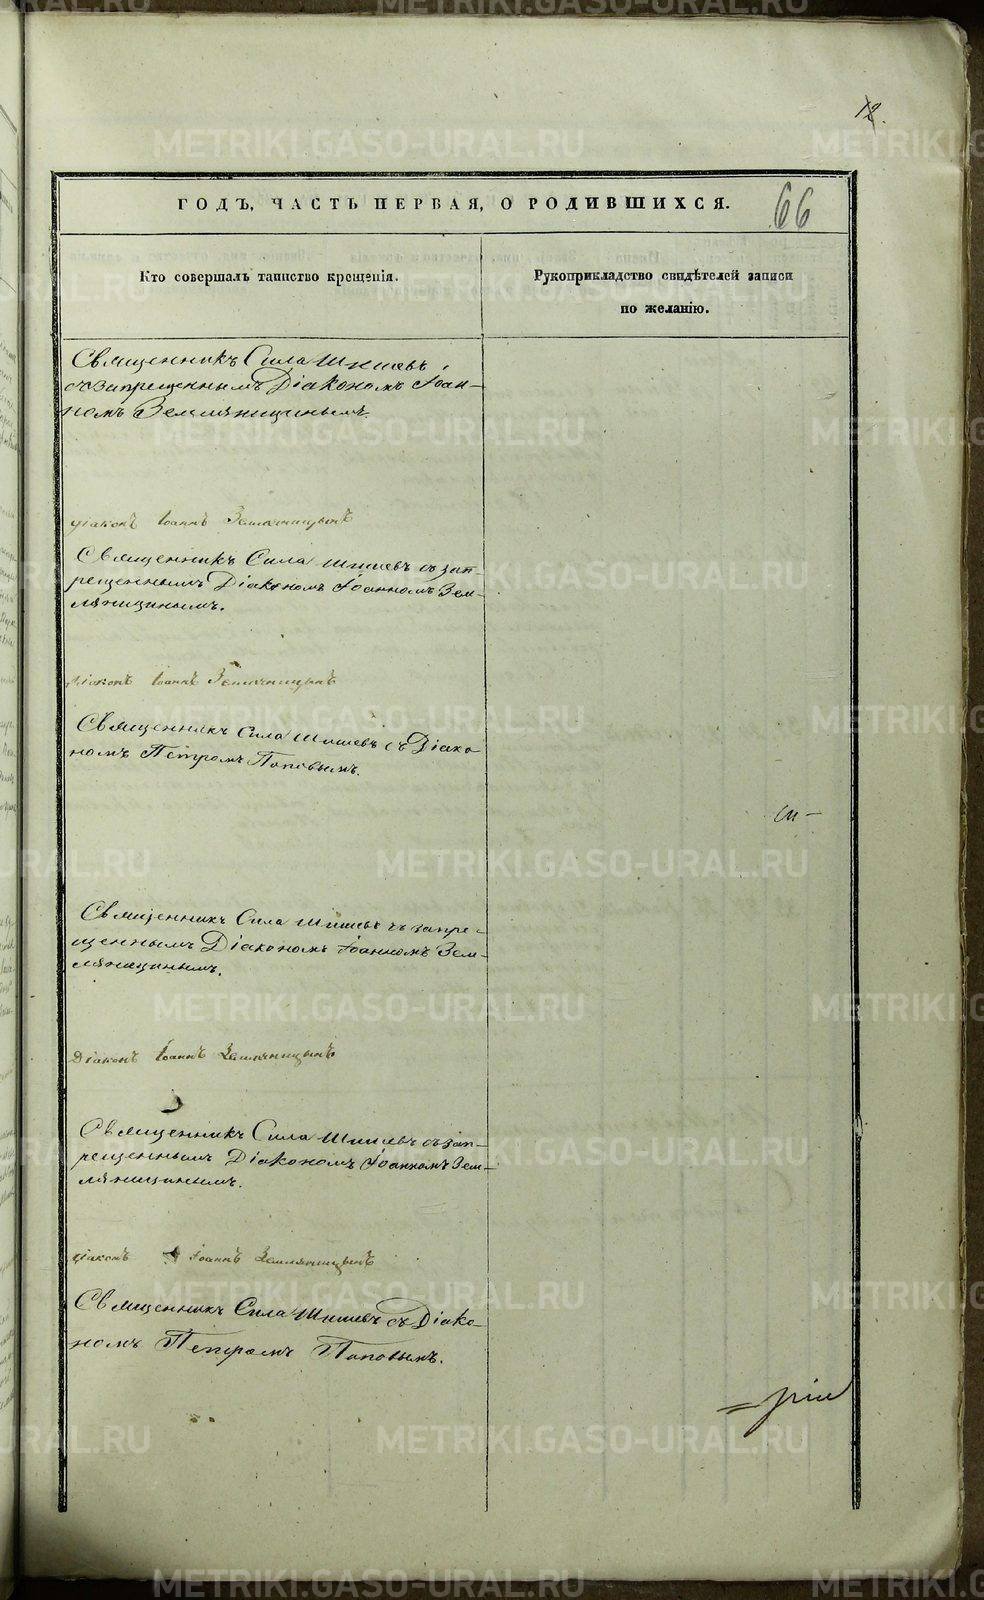 12.
ГОДЪ, ЧАСТЬ ПЕРВАЯ, О РОДИВШИХСЯ.
66
Кто совершалъ таинство крещенія.
Рукоприкладство свидѣтелей записи
по желанію.
Священникъ Сила Шишевъ
съ запрещеннымъ Діакономъ Іоан-
номъ Земляницинымъ.
Діаконъ Іоаннъ Земляницынъ
Священникъ Сила Шишевъ съ зап-
рещеннымъ Діакономъ Іоанномъ Зем-
ляницинымъ.
Діаконъ Іоаннъ Земляницынъ
Священникъ Сила Шишевъ съ Діако
номъ Петромъ Поповымъ.
Священникъ Сила Шишевъ съ запре-
щеннымъ Діакономъ Іоанномъ Зем-
ляницинымъ.
Діаконъ Іоаннъ Земляницынъ
Священникъ Сила Шишевъ съ зап-
рещеннымъ Діакономъ Іоанномъ Зем-
ляницинымъ.
Діаконъ Іоаннъ Земляницынъ
Священникъ Сила Шишевъ съ Діако-
номъ Петромъ Поповымъ.
METRIKI.GASO-URAL.RU